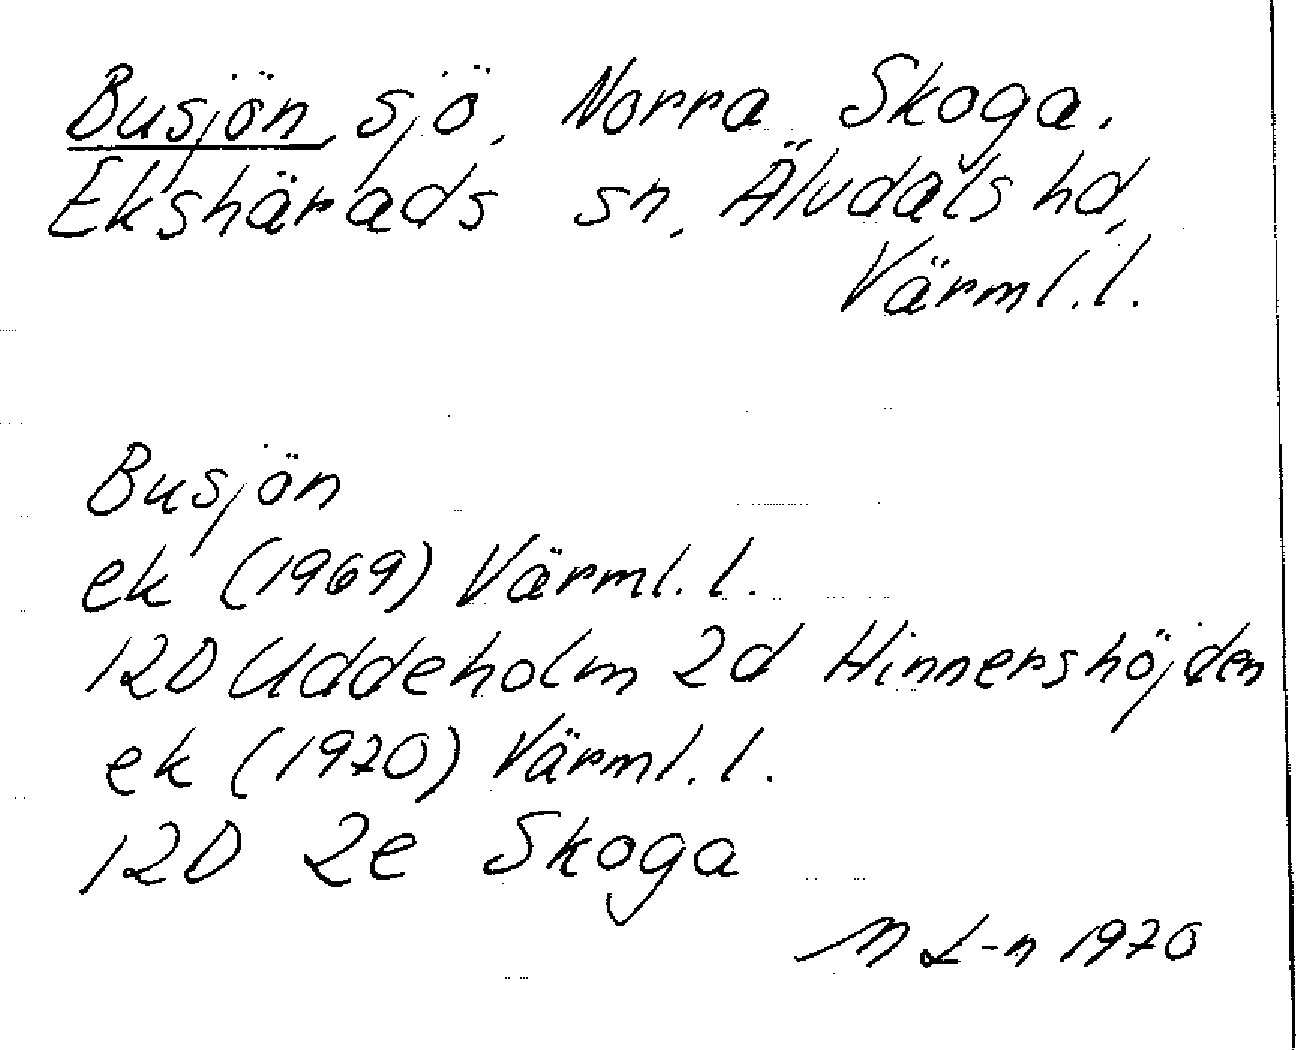 Busjön, sjö, Norra Skoga,
Ekshärads sn, Älvdals hd,
Värml. l.
Busjön
ek (1969) Värml. l.
12D Uddeholm 2d Hinnershöjden
ek (1970) Värml. l.
12D 2e Skoga
N L-n 1970